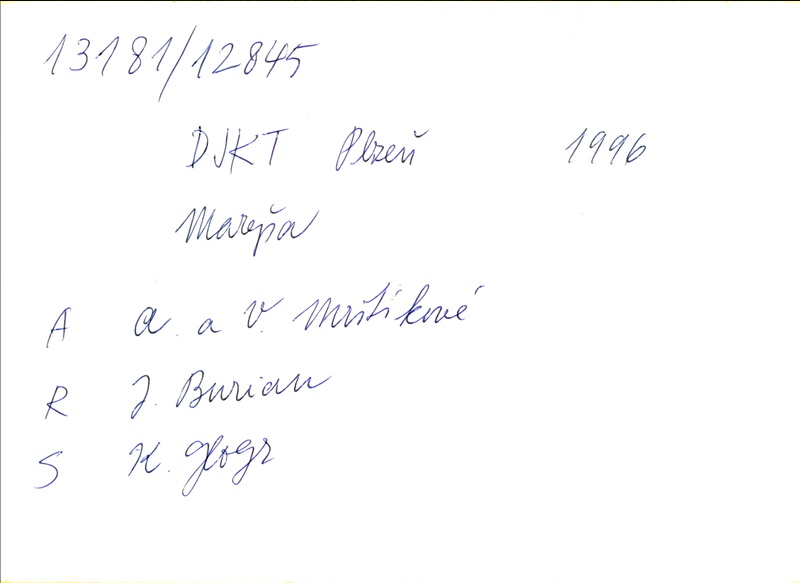 13181/12845
DJKT Plzeň 1996
Maryša
A A. a V. Mrštíkové
R J. Burian
S K. Glogr